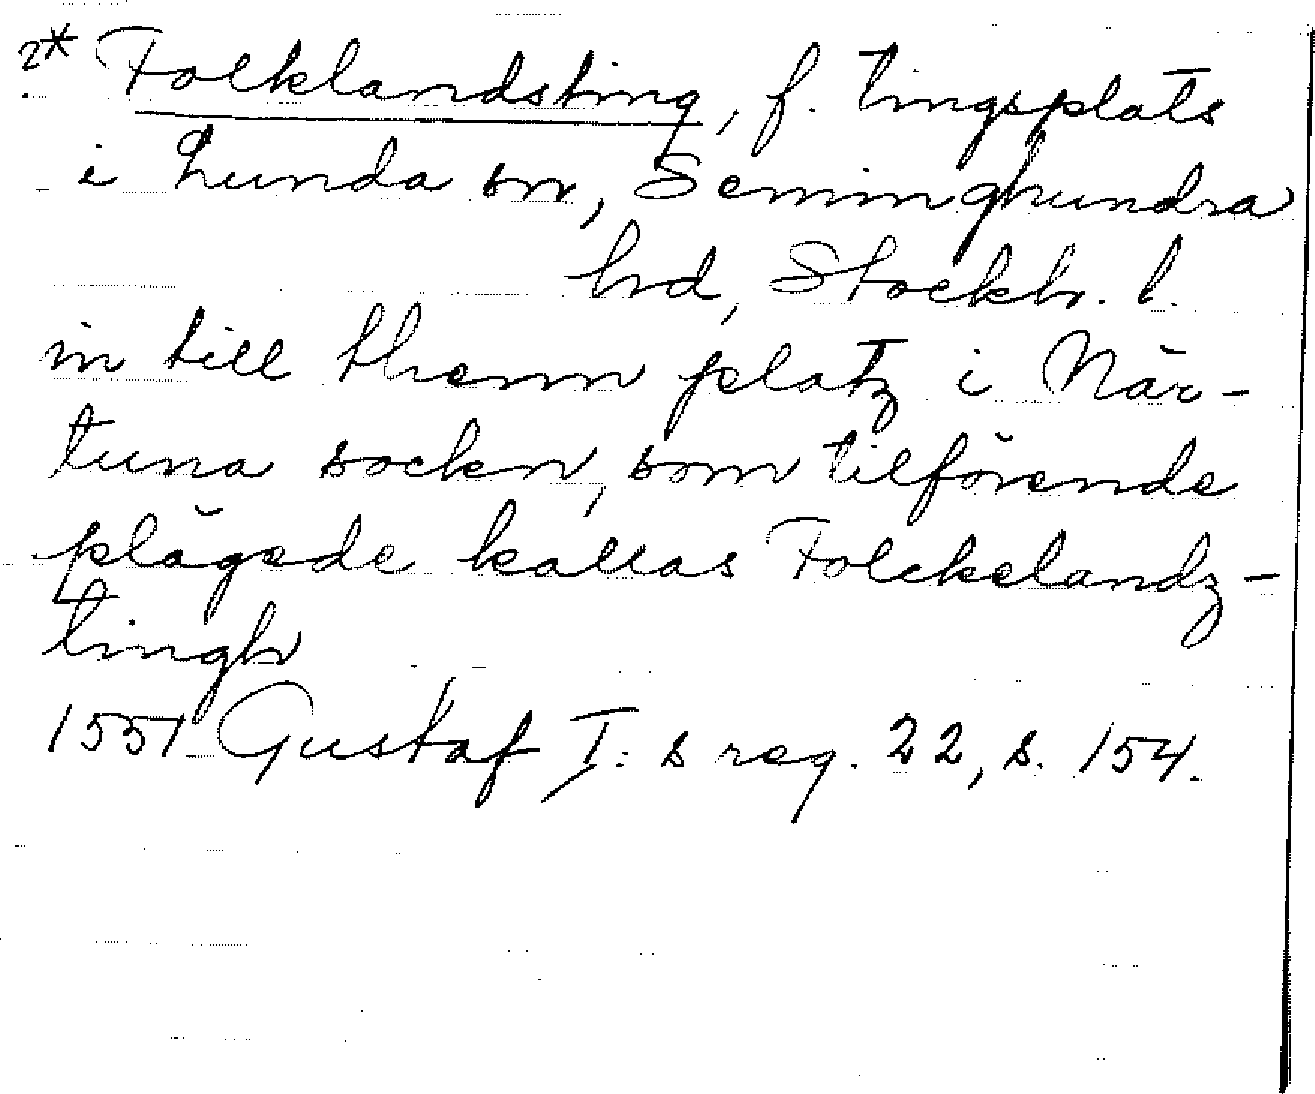 2* Folklandsting, f. tingsplats
i Lunda sn, Seminghundra
hd, Stockh. l.
in till thenn platz i När-
tuna sockn, som tilförende
plägede kallas Folckelandz-
tingh
1551 Gustaf I:s reg. 22, s. 154.